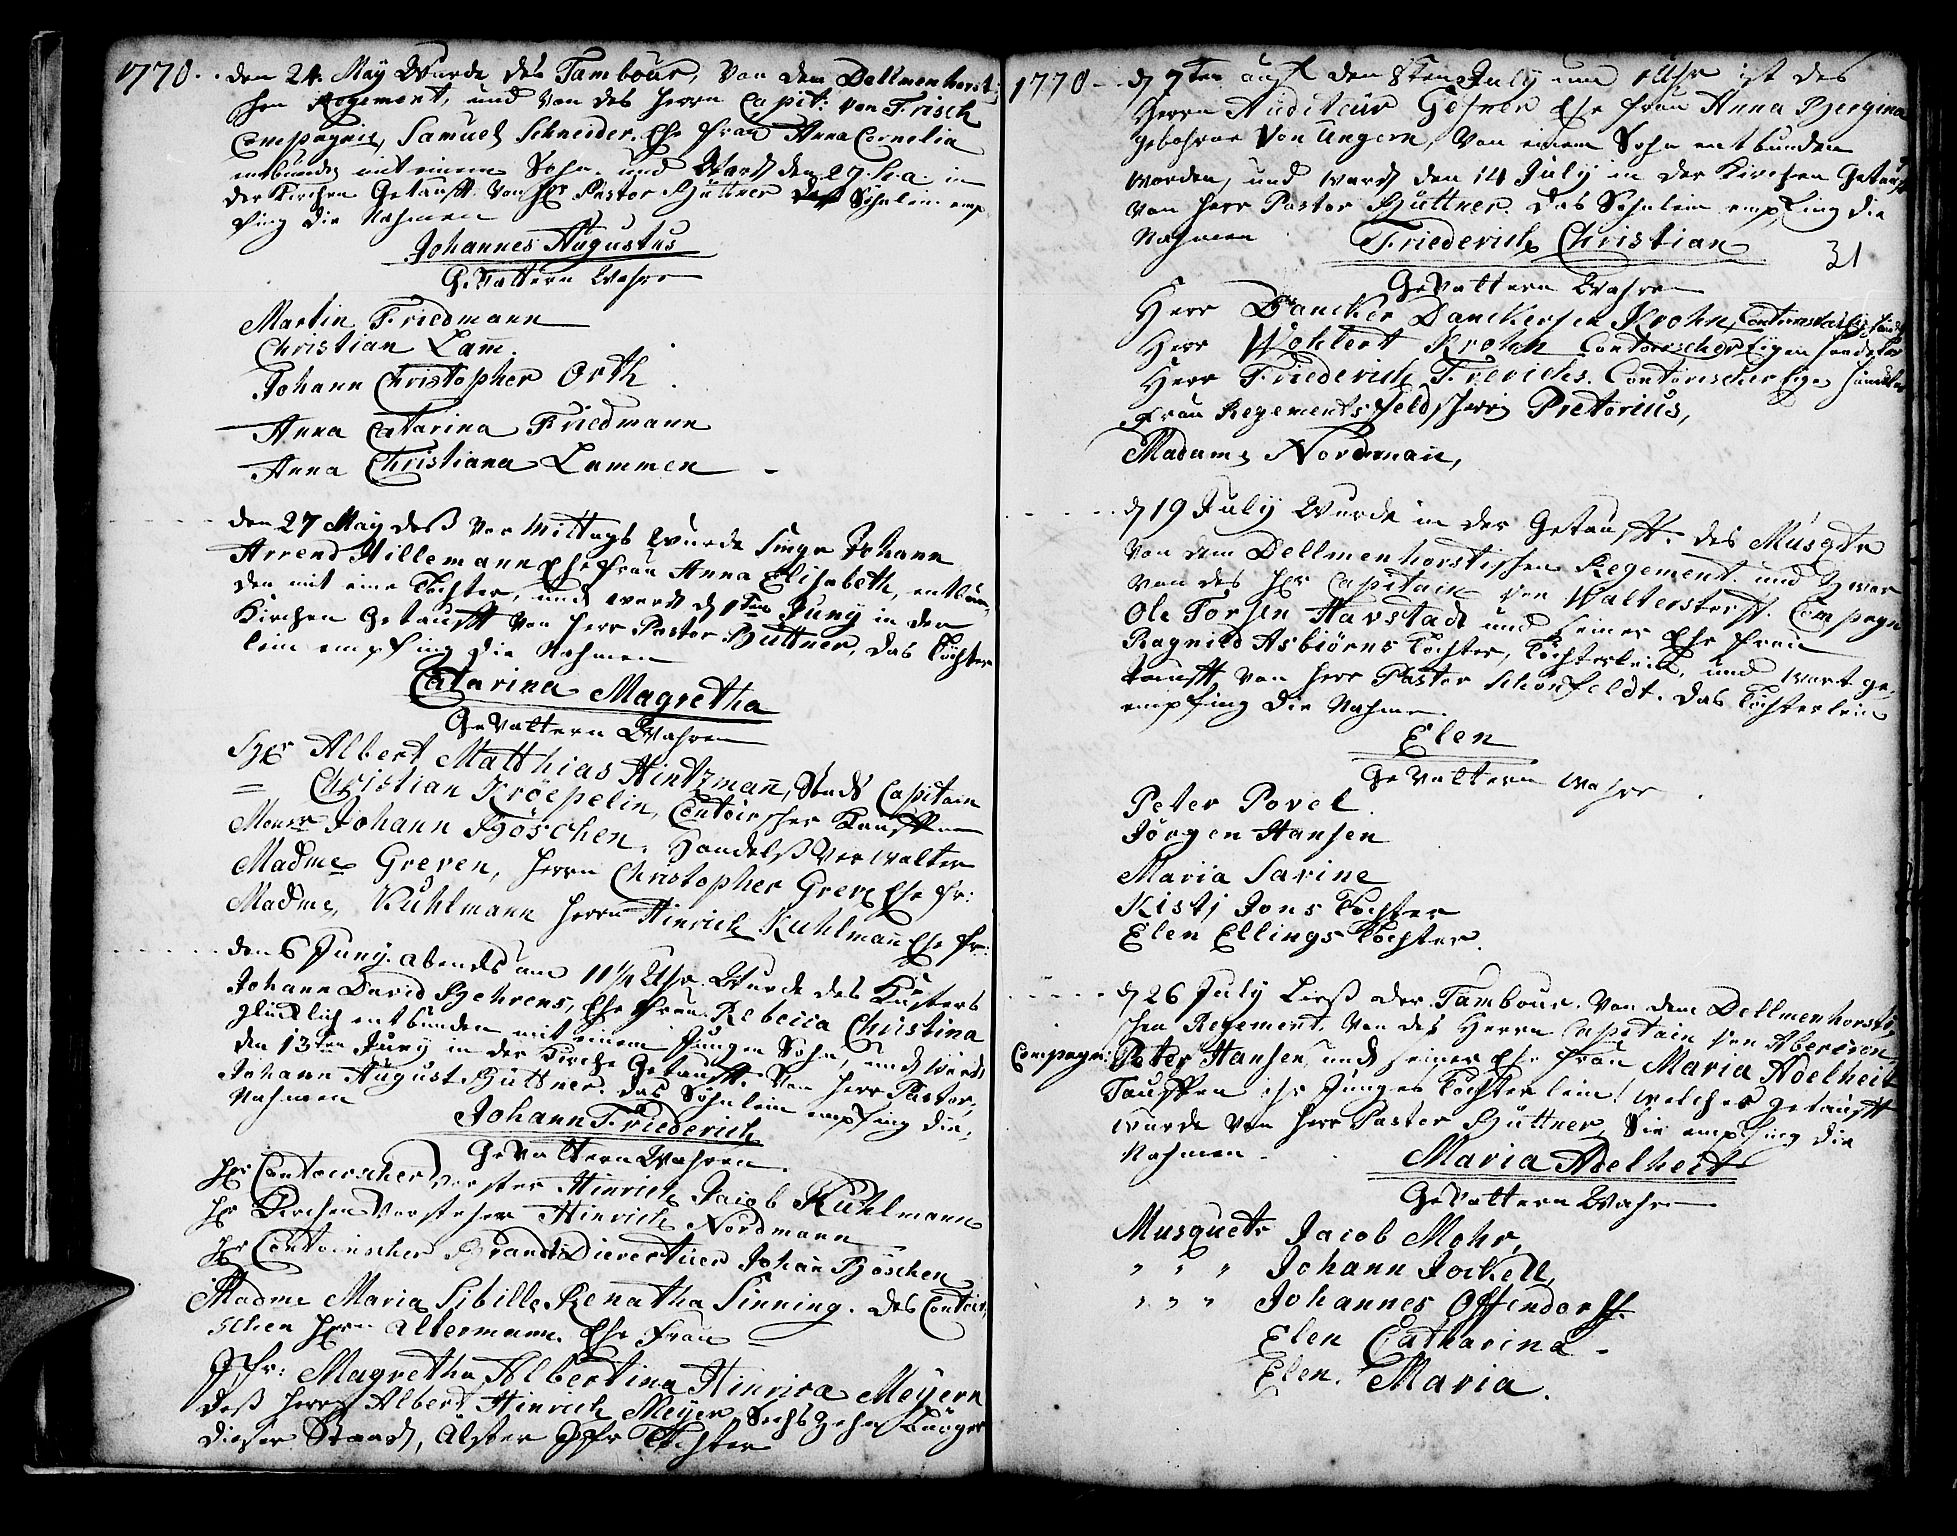 1770. den 24. May Wurde des Tambour, von dem Dellmenhorst-
schen Regement, und von des Herrn Capit: von Frisch
Compagnie, Samuel Schneider. Ehe Frau Anna Cornelia
entbunden mit einem Sohn. und Ward den 27. in
der Kirchen Getaufft. von Hr Pastor Büttner das Söhnlein emp
fing die Nahmen
Johannes Augustus
Gevattern Wahre
Martin Friedmann
Christian Lam̅
Johann Christopher Orth
Anna Catarina Friedmann
Anna Christiana Lammen
den 27 May deß vor Mittags Wurde Johann
Arrend Hillemann Ehe Frau Anna Elisabeth, entbun
den mit eine Tochter, und ward d 1ten Juny in der
Kirchen Getaufft von Herr Pastor Büttner, das Töchter
lein empfing die Nahmen
Catarina Magretha
Gevattern Wahren
Hr Albert Matthias Hintzman̅, Stads Capitain
= Christian Kröepelin, Contoirscher Kauffman
Monsr Johann Böschen, Handelß Verwalter
Madme Greven, Herrn Christopher Greve Ehe Fr:
Madme, Kuhlmann Herrn Hinrich Kuhlman̅ Ehe Fr:
den 6 Juny abends um 11 1/4 Uhr. Wurde des Kusters
Johann David Behrens, Ehe Frau Rebecca Christina
glücklich entbunden mit einem Jungen Sohn, und Ward
den 13ten Juny in der Kirche Getaufft. von Herr Pastor,
Johann August Büttner. das Söhnlein empfing die
Nahmen
Johann Friederich
Gevattern Wahren
Hr Contoirscher Hinrich Jacob Kuhlmann
Hr Kirchen Vorsteher Hinrich Nordmann
Hr Contoirscher Brands Directeur Johan̅ Böschen
Madme Maria Sibille Renatha Sinning. des Contoir
schen Hrn Altermann Ehe Frau
Jgfr: Magretha Albertina Hinrica Meyern
deß Herrn Albert Hinrich Meyer Bürger
dieser Stadt, Älster Jgfr Tochter
1770 d 7ten auf den 8ten July um Uhr ist des
Herrn Auditeur Gösner Ehe Frau Anna Bergina
gebohrne von Ungern, von einem Sohn entbunden
worden, und ward den 14 July in der Kirchen Getauft
von Herr Pastor Büttner. das Söhnlein empfing die
Nahmen Friederich Christian
31
Gevattern Wahren
Herr Dancker Danckersen Krohn,
Herr Wohlert Krohn Contoirscher
Herr Friederich Frerichs. Contoirscher
Frau Regements Feldscherr Pretorius,
Madame Nordman̅,
d 19 July Wurde in der Getaufft. des Musqdtr
von dem Dellmenhorstischen Regement und zwar
von des Hr Capitain von Walterstorff. Compagn
Ole Torsen Havstad und seiner Ehe Frau
Ragnild Asbiörns Tochter, Töchterlein, und wart ge
taufft von Herr Pastor Schönfeldt. das Töchterlein
empfing die Nahme
Elen
Gevattern Wahre
Peter Povel.
Jörgen Hansen
Maria Sarine
Kisti Jons Tochter
Elen Ellings Tochter.
d 26 July Ließ der Tambour. von dem Dellmenhorsti
schen Regement. von deß Herrn Capitain von
Compagni: Peter Hansen, und seiner Ehe Frau Maria Adelheit
Tauffen ihr Junges Töchterlein! welches getaufft
wurde von Herr Pastor Büttner, Sie empfing die
Nahmen
Maria Adelheit
Gevattern Wahren
Musquetr Jacob Mohr,
" " " Johann Jockell,
" " " Johannes Offendorff.
Elen Catharina
Elen. Maria.